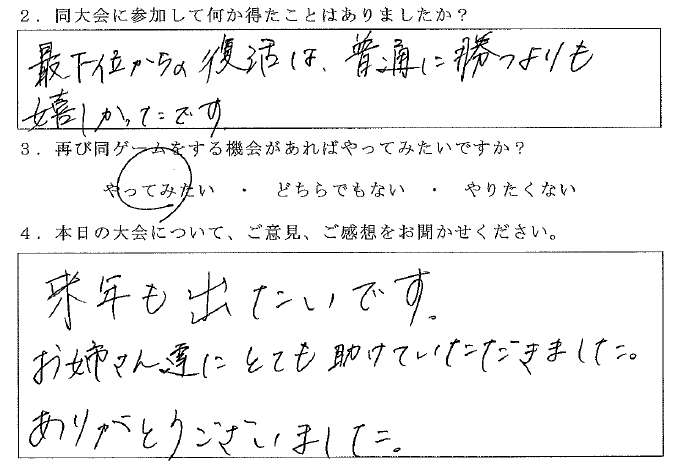 ２．同大会に参加して何か得たことはありましたか？
最下位からの復活は、普通に勝つよりも
嬉しかったです
３．再び同ゲームをする機会があればやってみたいですか？
やってみたい ・ どちらでもない ・ やりたくない
４．本日の大会について、ご意見、ご感想をお聞かせください。
来年も出たいです。
お姉さん達にとても助けていただきました。
ありがとうございました。